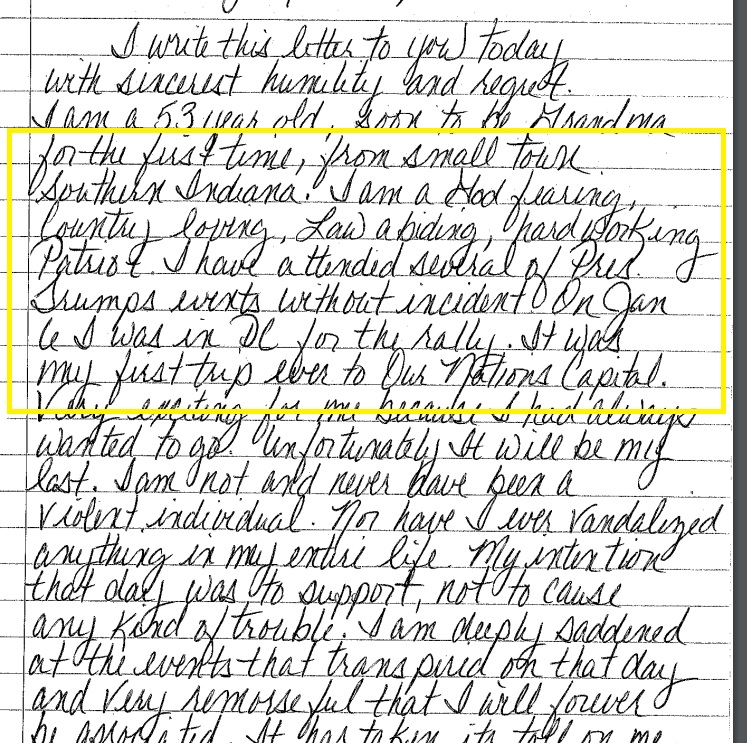 I write this letter to you today
with sincerest humility and regret.
I am a 53 year old, soon to be Grandma
for the first time, from small town
Southern Indiana. I am a God fearing,
Country loving, Law abiding, hard working
Patriot. I have attended several of Pres.
Trumps events without incident. On Jan
6 I was in DC for the rally. It was
my first trip ever to Our Nations Capital.
Very exciting for me because I had always
wanted to go. Unfortunately It will be my
last. I am not and never have been a
violent individual. Nor have I ever vandalized
anything in my entire life. My intention
that day was to support, not to cause
any kind of trouble. I am deeply saddened
at the events that transpired on that day
and very remorseful that I will forever
be associated. It has taken its toll on me